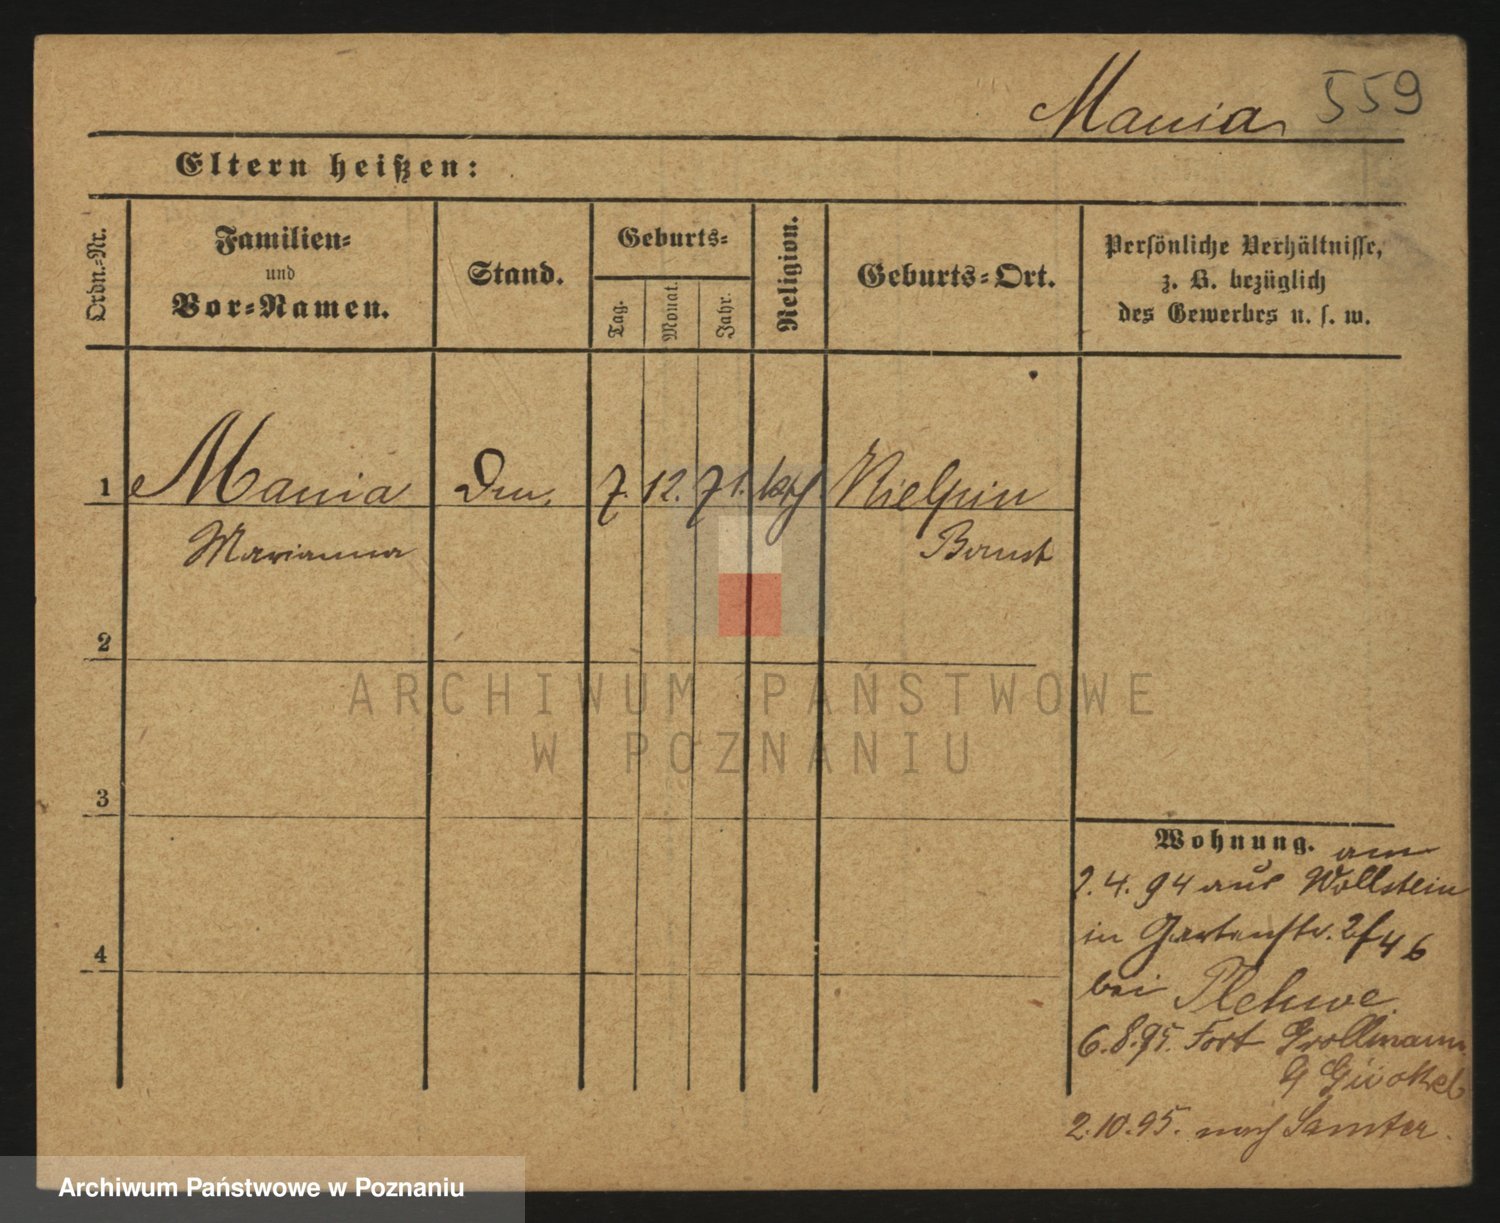 Mania 559
Eltern heißen:
Ordn.-Nr.
Familien-
und
Vor-Namen.
Stand.
Geburts-
Tag.
Monat.
Jahr.
Religion.
Geburts-Ort.
Persönliche Verhältnisse,
z. B. bezüglich
des Gewerbes u. s. w.
1 Mania 7. 12. 71. kth Kielpin
Marianna Bomst
2
3
4
Wohnung. am
2.4.94 aus Wollstein
in Gartenstr.
bei Plehwe
6.8.95. Fort Grollmann
2.10.95. nach Samter.
ARCHIWUM PAŃSTWOWE
W POZNANIU
Archiwum Państwowe w Poznaniu